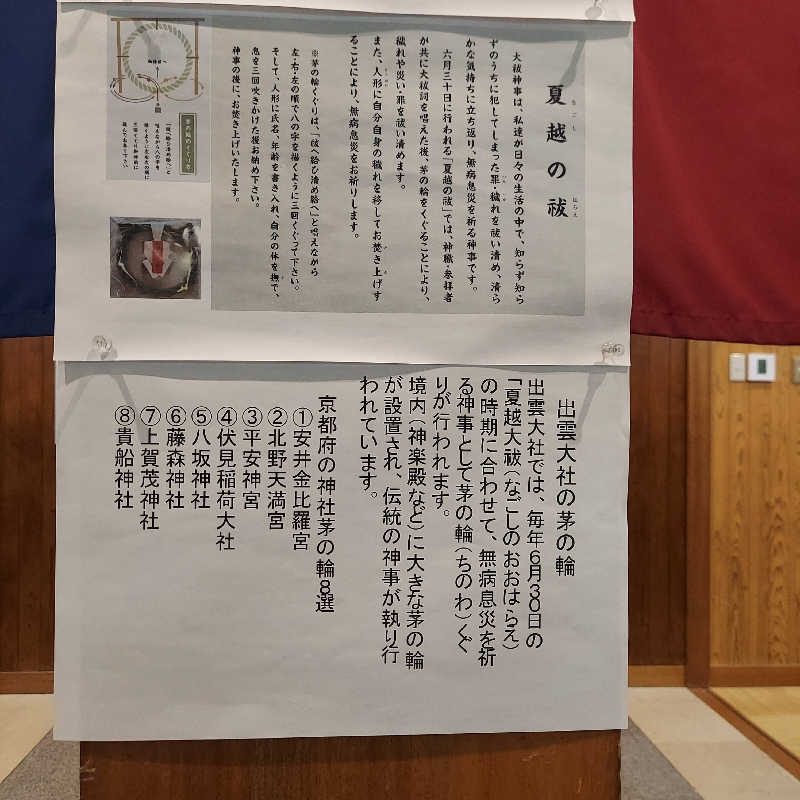 夏越の祓
なごし
はらえ
大祓神事は、私達が日々の生活の中で、知らず知ら
ずのうちに犯してしまった罪・穢れを祓い清め、清ら
かな気持ちに立ち返り、無病息災を祈る神事です。
六月三十日に行われる「夏越の祓」では、神職・参拝者
が共に大祓詞を唱えた後、茅の輪をくぐることにより、
穢れや災い・罪を祓い清めます。
また、人形に自分自身の穢れを移してお焚き上げす
ることにより、無病息災をお祈りします。
※茅の輪くぐりは、「祓へ給ひ清め給へ」と唱えながら
左・右・左の順で八の字を描くように三回くぐって下さい。
そして、人形に氏名、年齢を書き入れ、自分の体を撫で、
息を三回吹きかけた後お納め下さい。
神事の後に、お焚き上げいたします。
茅の輪のくぐり方
「祓へ給ひ清め給へ」と
出雲大社の茅の輪
出雲大社では、毎年6月30日の
「夏越大祓(なごしのおおはらえ)
の時期に合わせて、無病息災を祈
る神事として茅の輪(ちのわ)くぐ
りが行われます。
境内(神楽殿など)に大きな茅の輪
が設置され、伝統の神事が執り行
われています。
京都府の神社茅の輪8選
①安井金比羅宮
②北野天満宮
③平安神宮
④伏見稲荷大社
⑤八坂神社
⑥藤森神社
⑦上賀茂神社
⑧貴船神社